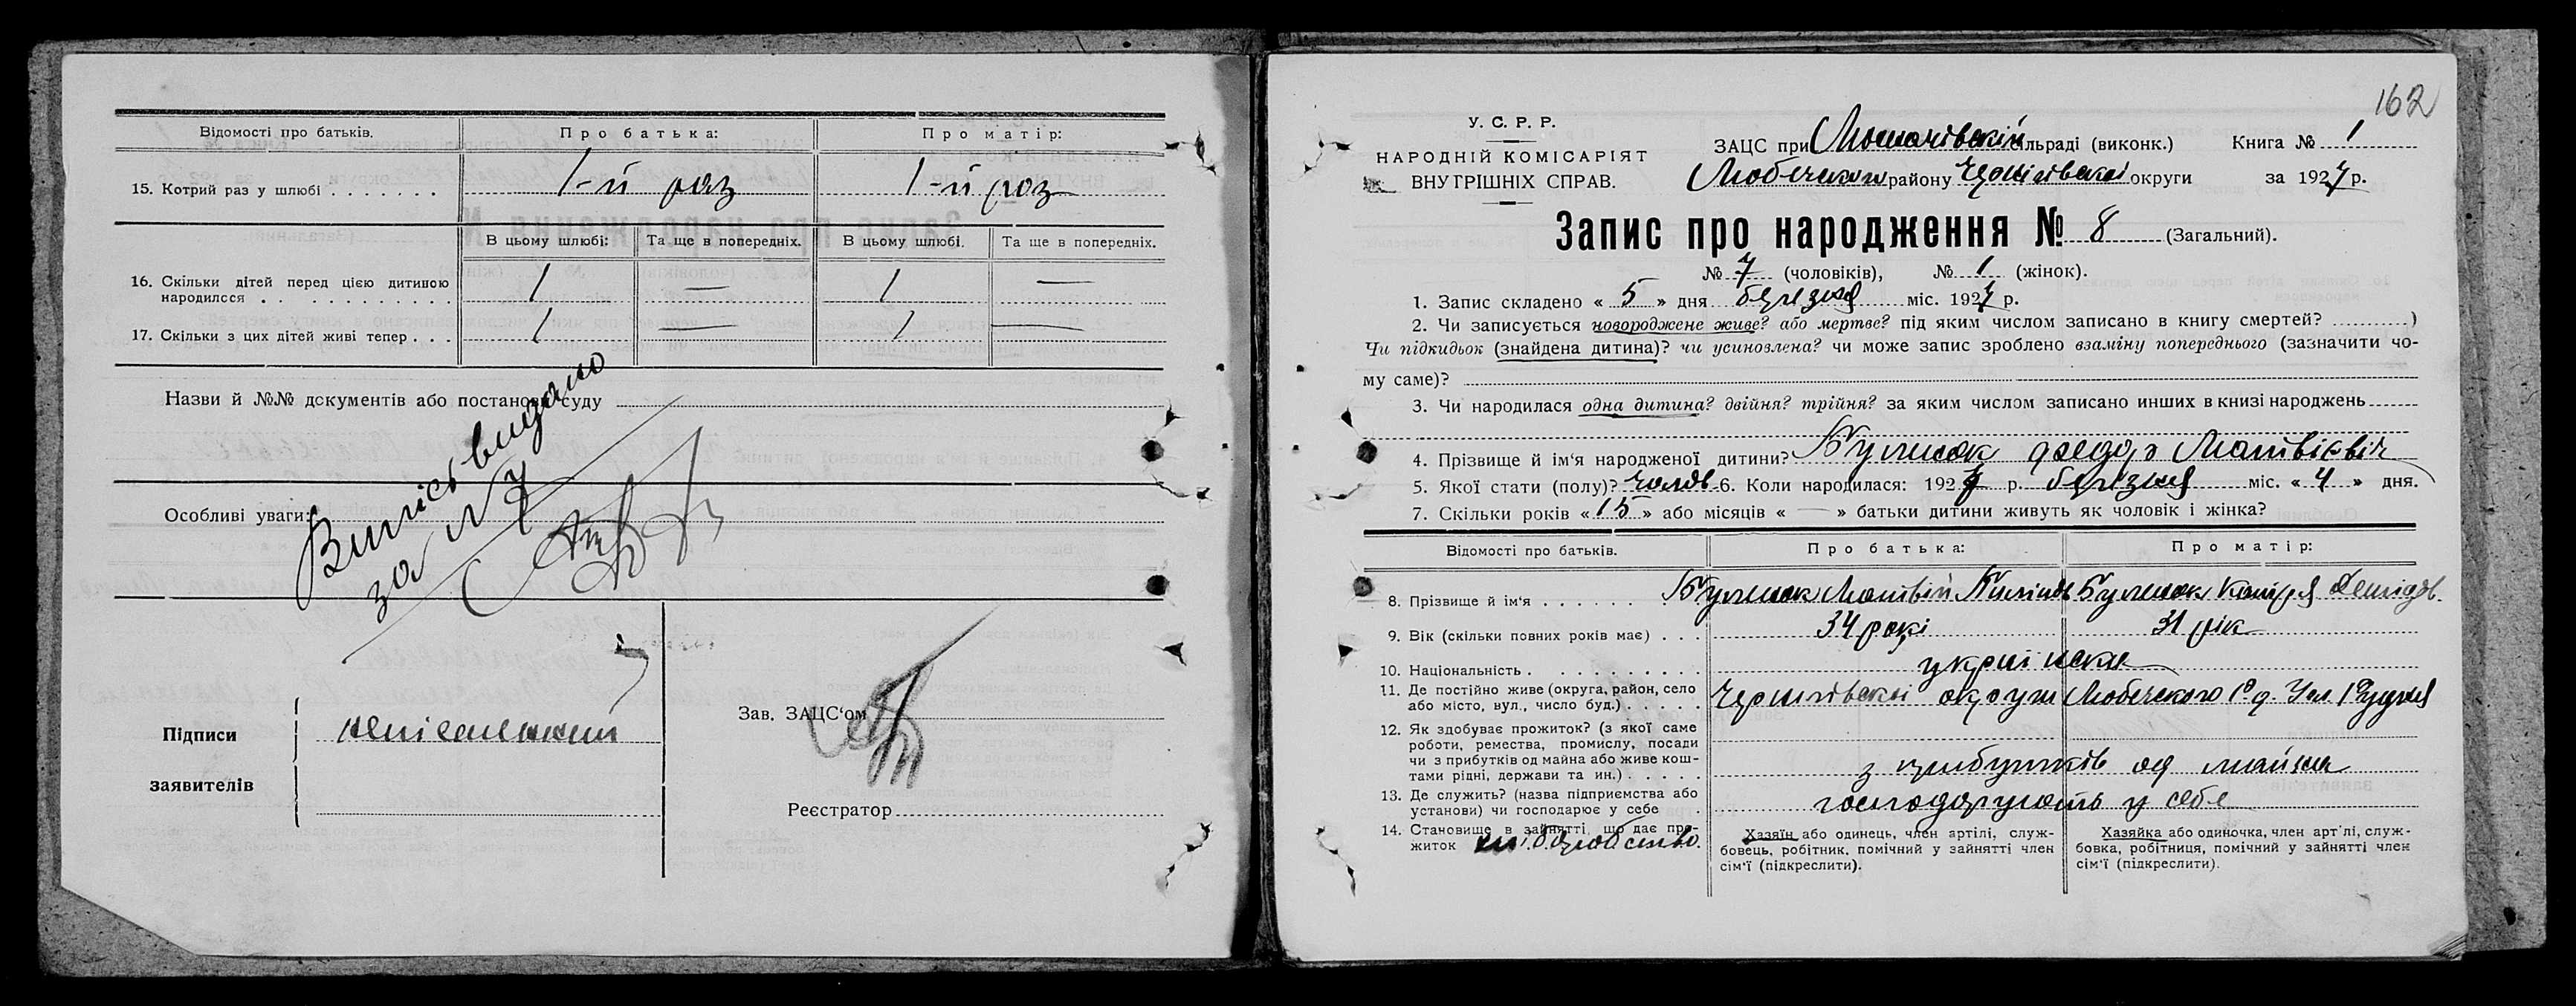 Відомості про батьків. Про батька: Про матір:
15. Котрий раз у шлюбі . . . . . . . 1-й раз 1-й раз
В цьому шлюбі: Та ще в попередніх. В цьому шлюбі. Та ще в попередніх.
16. Скільки дітей перед цією дитиною народилося . . . . . . . . . . . 1 — 1 —
17. Скільки з цих дітей живі тепер . . . 1 — 1 —
Назви й №№ документів або постанови суду
Випісь видано
за № 7
Особливі уваги:
Підписи
заявителів
Зав. ЗАЦС'ом
Реєстратор
162
У. С. Р. Р.
НАРОДНІЙ КОМІСАРІЯТ
ВНУТРІШНІХ СПРАВ.
ЗАЦС при сільраді (виконк.) Книга № 1
Любечского району Чернігівської округи за 1927 р.
Запис про народження № 8 (Загальний).
№ 7 (чоловіків), № 1 (жінок).
1. Запис складено « 5 » дня березня міс. 1927 р.
2. Чи записується новороджене живе? або мертве? під яким числом записано в книгу смертей? )
Чи підкидьок (знайдена дитина)? чи усиновлена? чи може запис зроблено взаміну попереднього (зазначити чо-
му саме)?
3. Чи народилася одна дитина? двійня? трійня? за яким числом записано инших в книзі народжень
4. Прізвище й ім'я народженої дитини? Федор Матвієвіч
5. Якої стати (полу)? чолов 6. Коли народилася: 1927 р. березня міс. « 4 » дня.
7. Скільки років « 15 » або місяців « — » батьки дитини живуть як чоловік і жінка?
Відомості про батьків. Про батька: Про матір:
8. Прізвище й ім'я . . . . . . Матвій
9. Вік (скільки повних років має) . . . 34 рокі 31 рік
10. Національність . . . . . . . . . . українска
11. Де постійно живе (округа, район, село
або місто, вул., число буд.) . . . . . Чернігівскої округи Любечского Рудня
12. Як здобуває прожиток? (з якої саме
роботи, ремества, промислу, посади
чи з прибутків од майна або живе кош-
тами рідні, держави та ин.) . . . . . з прибутків од майна
13. Де служить? (назва підприємства або
установи) чи господарює у себе . господарують у себе
14. Становище в зайнятті, що дає про-
житок
Хазяїн або одинець, член артілі, служ-
бовець, робітник, помічний у зайнятті член
сім'ї (підкреслити).
Хазяйка або одиночка, член артілі, служ-
бовка, робітниця, помічний у зайнятті член
сім'ї (підкреслити).